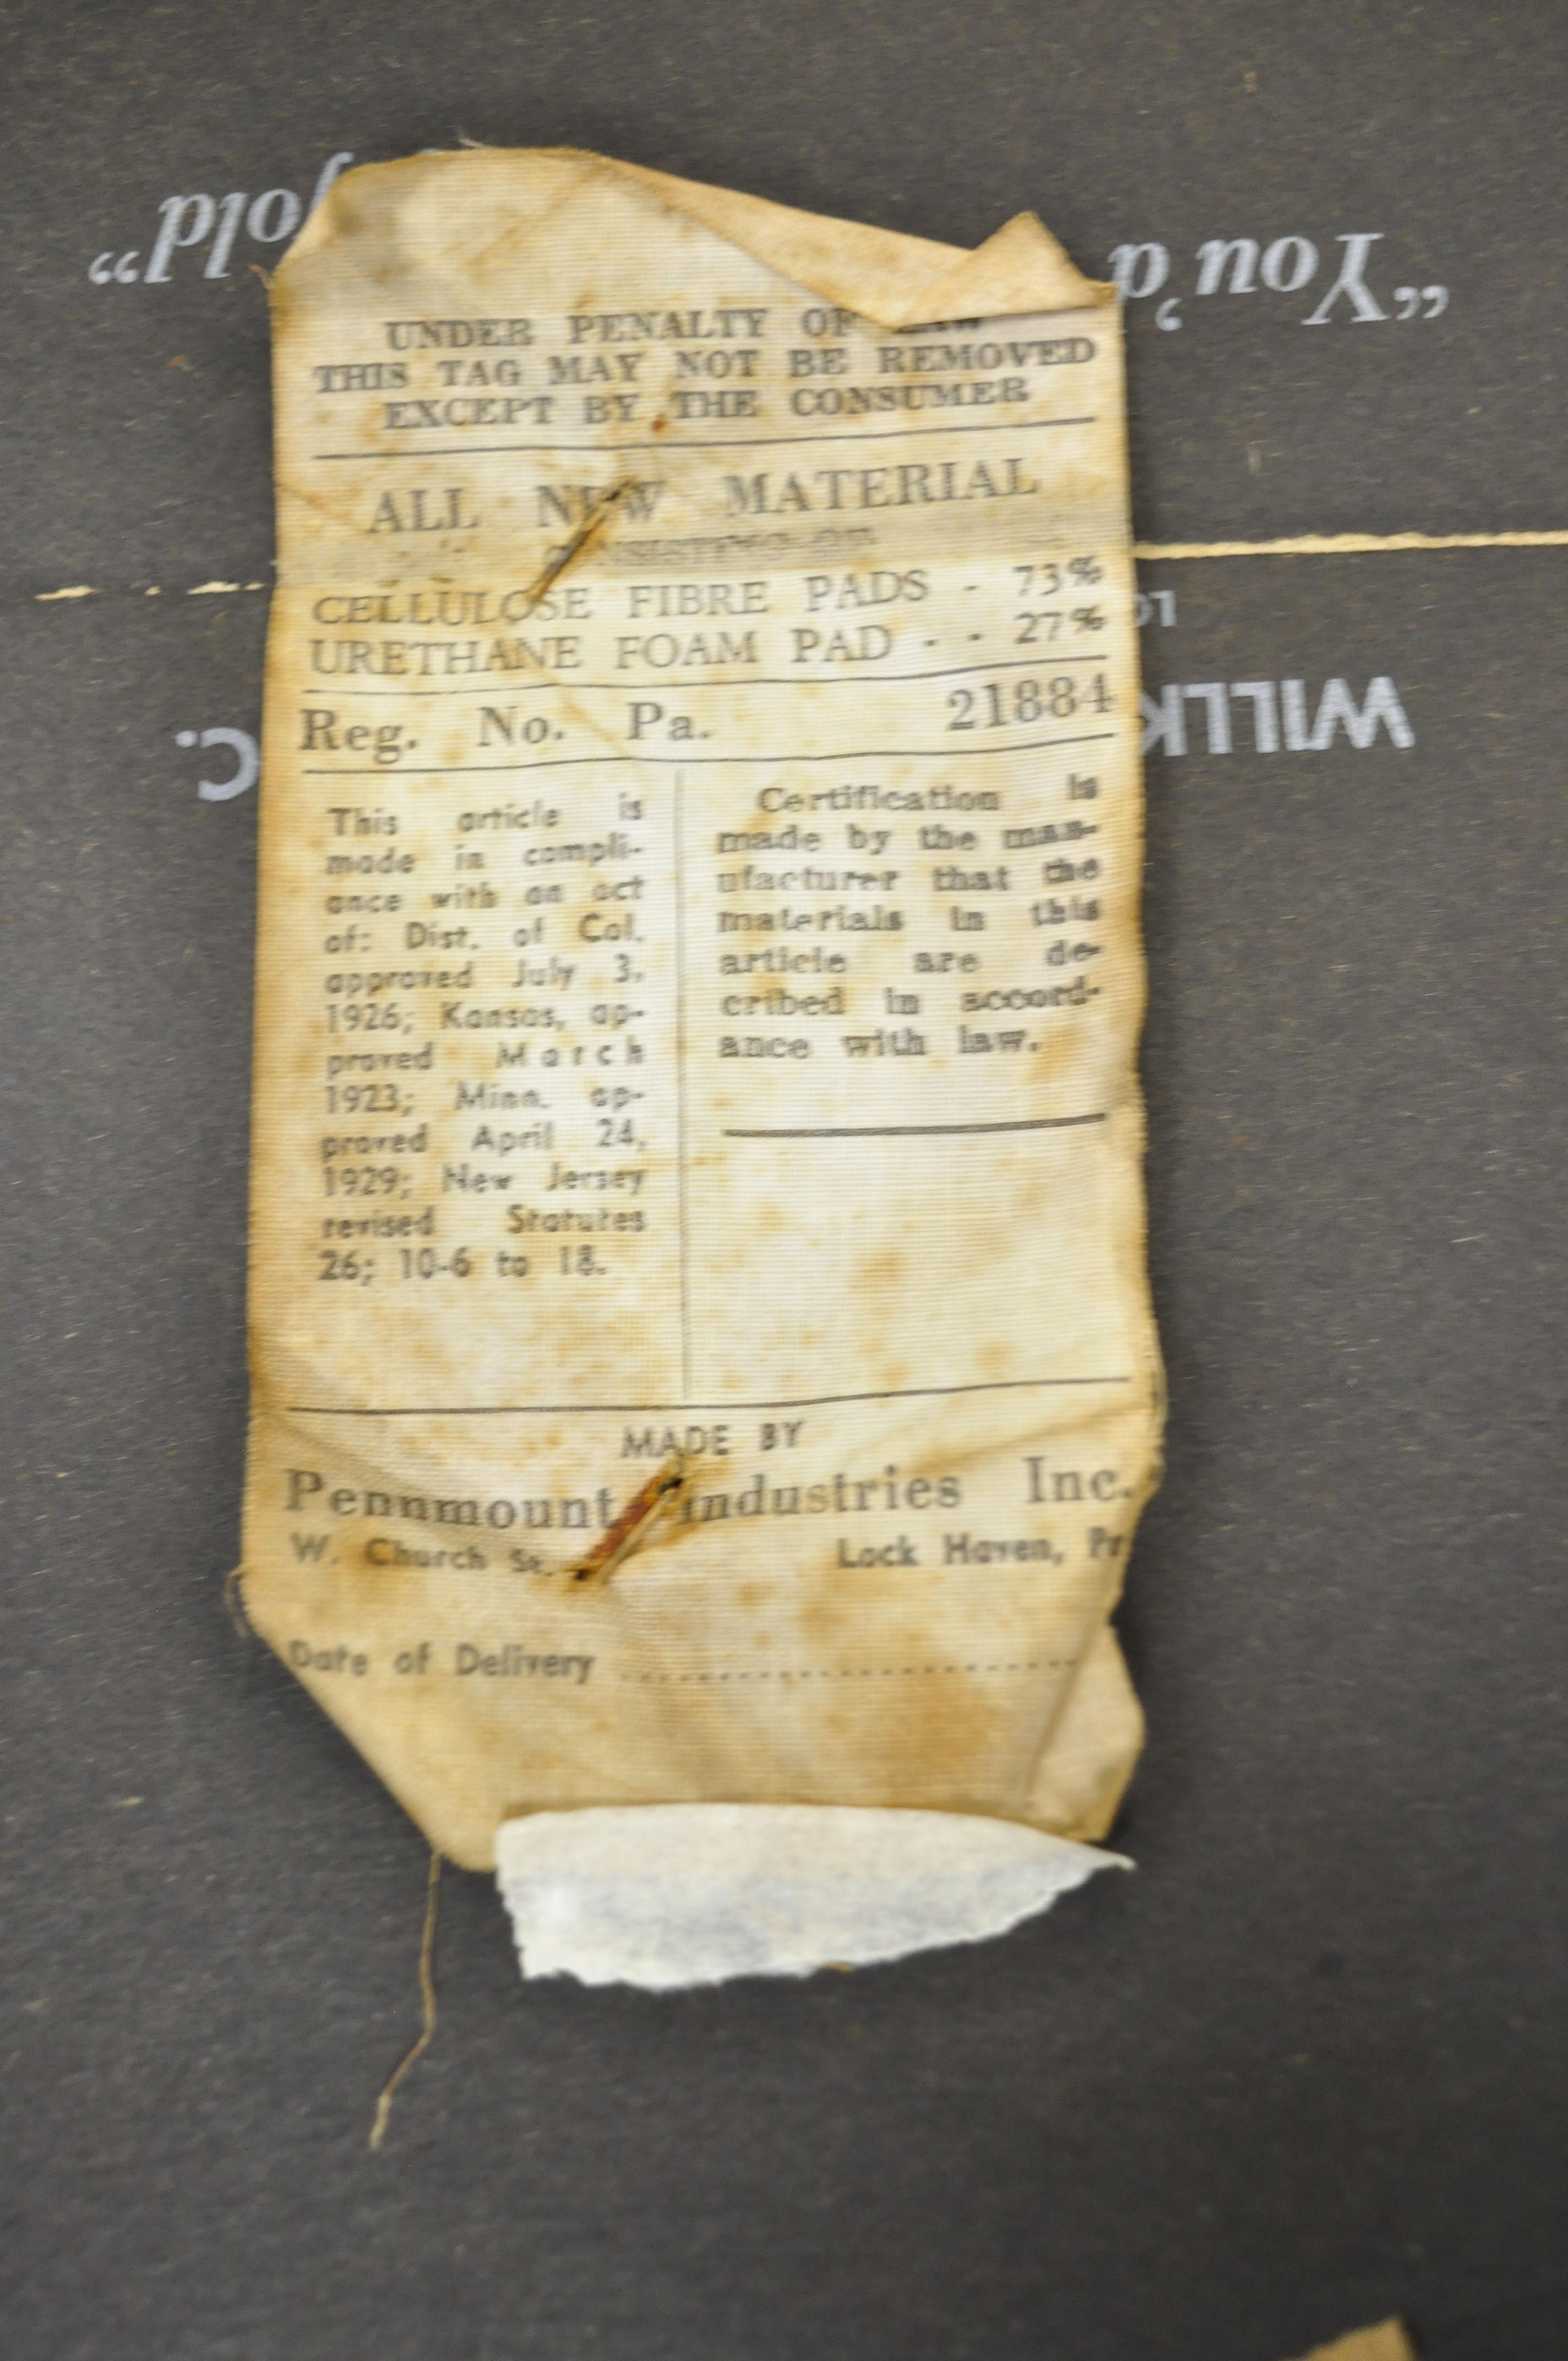 UNDER PENALTY OF LAW
THIS TAG MAY NOT BE REMOVED
EXCEPT BY THE CONSUMER
ALL NEW MATERIAL
CONSISTING OF
CELLULOSE FIBRE PADS - 73%
URETHANE FOAM PAD - - 27%
Reg. No. Pa. 21884
This article is
made in compli-
ance with an act
of: Dist. of Col.
approved July 3,
1926; Kansas, ap-
proved March
1923; Minn. ap-
proved April 24,
1929; New Jersey
revised Statutes
26; 10-6 to 18.
Certification is
made by the man-
ufacturer that the
materials in this
article are de-
cribed in accord-
ance with law.
MADE BY
Pennmount Industries Inc.
W. Church St. Lock Haven,
Date of Delivery
"You'd